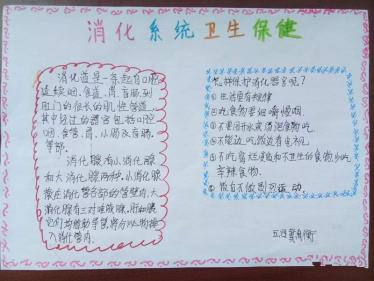 消化系统卫生保健
消化道是一条起自口腔
延续咽、食道、胃、小肠到
肛门的很长的肌性管道，
其中经过的器官包括口腔
咽、食管、胃、小肠及盲肠
等部.
消化腺有小消化腺
和大消化腺两种，小消化腺
散在消化管各部的管壁内，大
消化腺有三对唾液腺，肝和胰
它们均借助导管，将分泌物排
入消化管内.
怎样保护消化器官呢？
①生活要有规律
②吃食物要细嚼慢咽。
③不要用开水或汤泡食物吃。
④不能边吃饭边看电视
⑤不吃腐烂变质和不卫生的食物，少吃
辛辣食物。
⑥饭后不做剧烈运动。